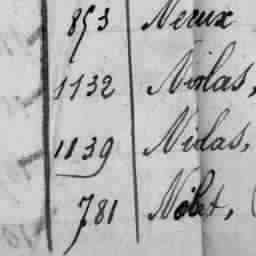 853 Nerux
1132 Niolas,
1139 Niolas,
781 Nölet,